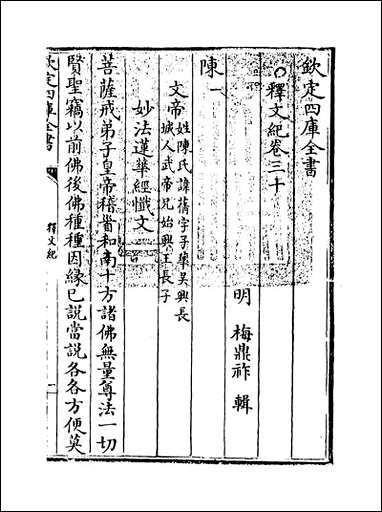 欽定四庫全書
釋文紀卷三十
明 梅鼎祚 輯
陳一
文帝 姓陳氏諱蒨字子華吳興長
城人武帝兄始興王長子
妙法蓮華經懺文
菩薩戒弟子皇帝稽首和南十方諸佛無量尊法一切
賢聖竊以前佛後佛種種因緣已說當說各各方便莫
欽定四庫全書
釋文紀
一